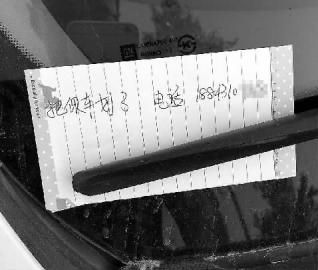 把你车划了 电话 1884310